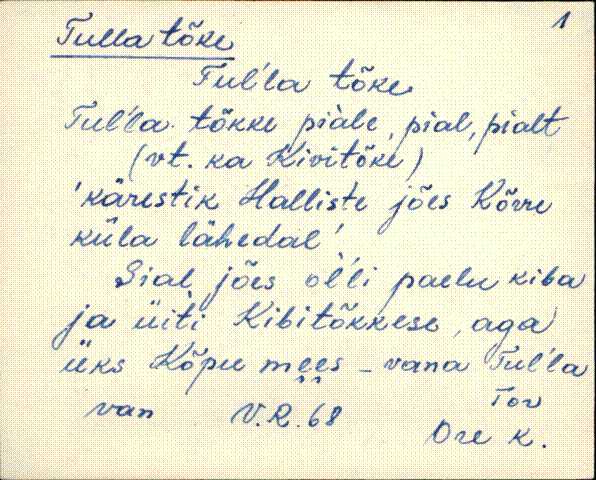 1
Tulla tõke
Tul'la tõke
Tul'la tõkke piàle, pial, pialt
(vt. ka Kivitõke)
'kärestik Halliste jões Kõrre
küla lähedal'.
Sial jões ol̀'li paelu kiba
ja üiti Kibitõkkese, aga
üks Kõpu mees - vana Tul'la
van V.R. 68 Tor
Ore K.